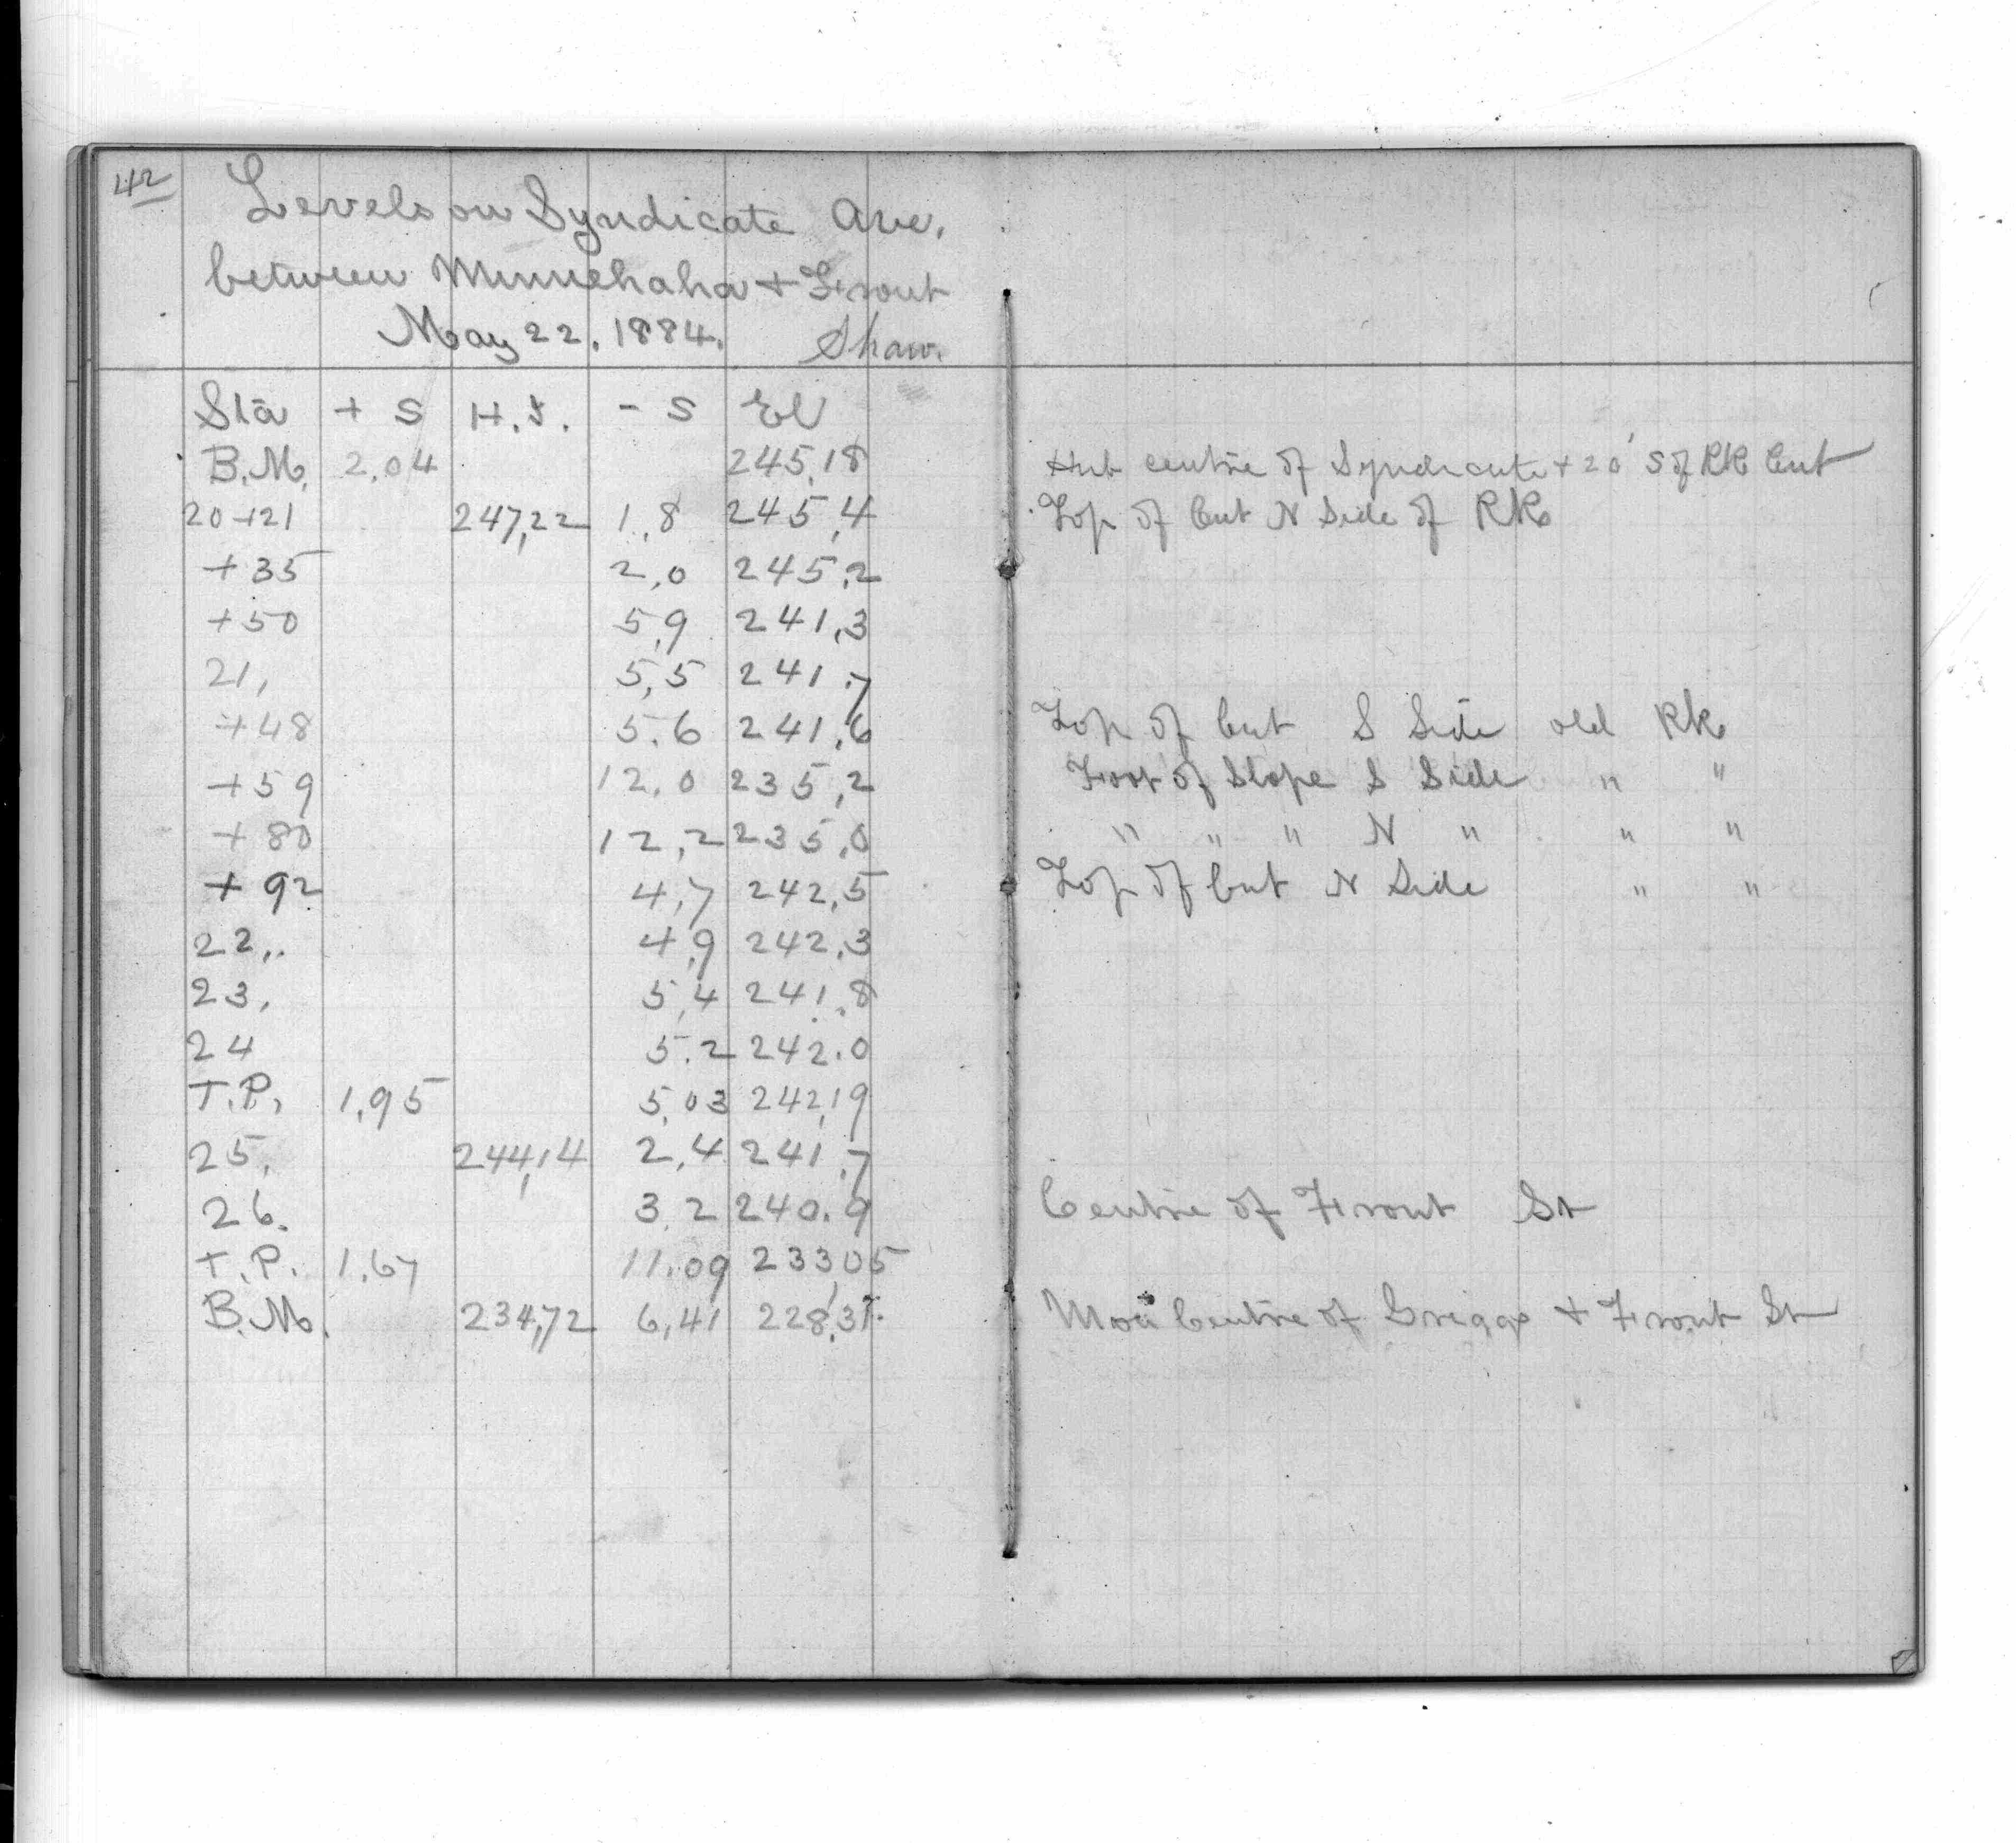 42
Levels on Syndicate Ave.
between Minnehaha + Front
May 22. 1884. Shaw.
Sta + S H.I. - S El
B.M. 2.04 245.18 Hub centre of Syndicate + 20' S of RR Cut
20+21 247.22 1.8 245.4 Top of Cut N Side of RR
+35 2.0 245.2
+50 5.9 241.3
21. 5.5 241.7
+48 5.6 241.6 Top of Cut S Side old RR
+59 12.0 235.2 Foot of Slope S Side " "
+80 12.2 235.0 " " " N " " "
+92 4.7 242.5 Top of Cut N Side " "
22.. 4.9 242.3
23. 5.4 241.8
24 5.2 242.0
T.P. 1.95 5.03 242.19
25. 244.14 2.4 241.7
26. 3.2 240.9 Centre of Front St
T.P. 1.67 11.09 233.05
B.M. 234.72 6.41 228.31. Mon Centre of Griggs + Front St